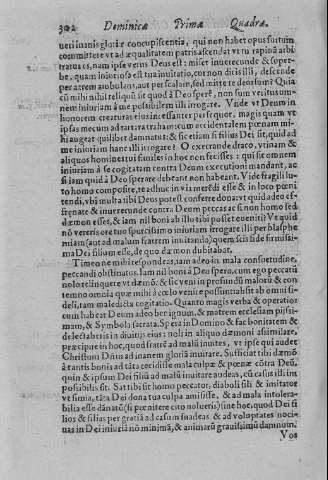 302 Dominicæ Primæ Quadræ.
ueri inanis gloriæ concupiscentia, qui non habet opus furtum
committere vt ad æqualitatem patris ascendat vt tu rapinā arbi
tratus es, nam ipse verus Deus est: miser inuerecunde & super-
be, quam iniuriosa est tua inuitatio, cur non dicis illi, descende
per aërem ambulans, aut per scalam, sed mitte te deorsum? Quia
cū mihi nihil reliquū sit quod à Deo sperē, non sum veritus om-
nem iniuriam à me possibilem illi irrogare. Vide vt Deum in
honorem creaturas eius incessanter persequor, magis quam vt
ipsas mecum ad tartara traham etsi accidentalem pœnam mi-
hi augeat quilibet damnatus: & sic etiam si filius Dei sit, quid ad
me iniuriam hanc illi irrogare? O execrande draco, vtinam &
aliquos homines tui similes in hoc non fecisses: qui sic omnem
iniuriam à se cogitatam contra Deum executioni mandant, ac
si iam quid à Deo sperare debeant non habeant. Vide fragili lu-
to homo composite, te adhuc in via mercedi esse & in loco pœni
tendi, vbi multa tibi Deus potest conferre dona: vt quid adeo ef-
frenate & inuerecunde contra Deum peccas ac si non homo sed
dæmon esses, & iam nil boni ab illo tibi posset euenire? Ve quid
nō vereris ore tuo spurcissimo iniuriam irrogare illi per blasphe
miam (aut ad malum fratrem inuitando) quem scis fide firmissi-
ma Dei filium esse, de quo dæmon dubitabat.
Timeo ne mihi respondeas, iam adeo in mala consuetudine,
peccandi obstinatus. Iam nil boni à Deo spero, cum ego peccatū
nolo relinquere vt dæmō, & sic veni in profundū malorū & con
temno omnia quæ mihi à cœlo venire possunt: absit ab omni si-
deli, tam maledicta cogitatio. Quanto magis verba & operatio:
cum habeat Deum adeo benignum, & matrem ecclesiam pijssi-
mam, & Symbola sacrata. Spera in Domino & fac bonitatem &
delectaberis in diuitijs eius: noli in aliquo dæmoni assimilare,
præcipue in hoc, quod fratrē ad malū inuites, vt ipse qui audet
Christum Dñum ad inanem gloriā inuitare. Sufficiat tibi dæmō
à tantis bonis ad tāta cecidisse mala culpæ & pœnæ cōtra Deū,
quin & ipsum Dei filiū ad malū inuitare audeas, cū casus illi im
possibilis sit. Sat tibi sit homo peccator, diaboli fili & imitator
vt simia, tāta Dei dona tua culpa amisisse, & ad mala intolera-
bilia esse dānatū (si pœnitere cito nolueris) sine hoc, quod Dei fi
lios & filias per gratiā ad casum suadeas & ad voluptates noci-
uas in Dei iniuriā nō minimā, & animarū grauissimū damnum.
Vos